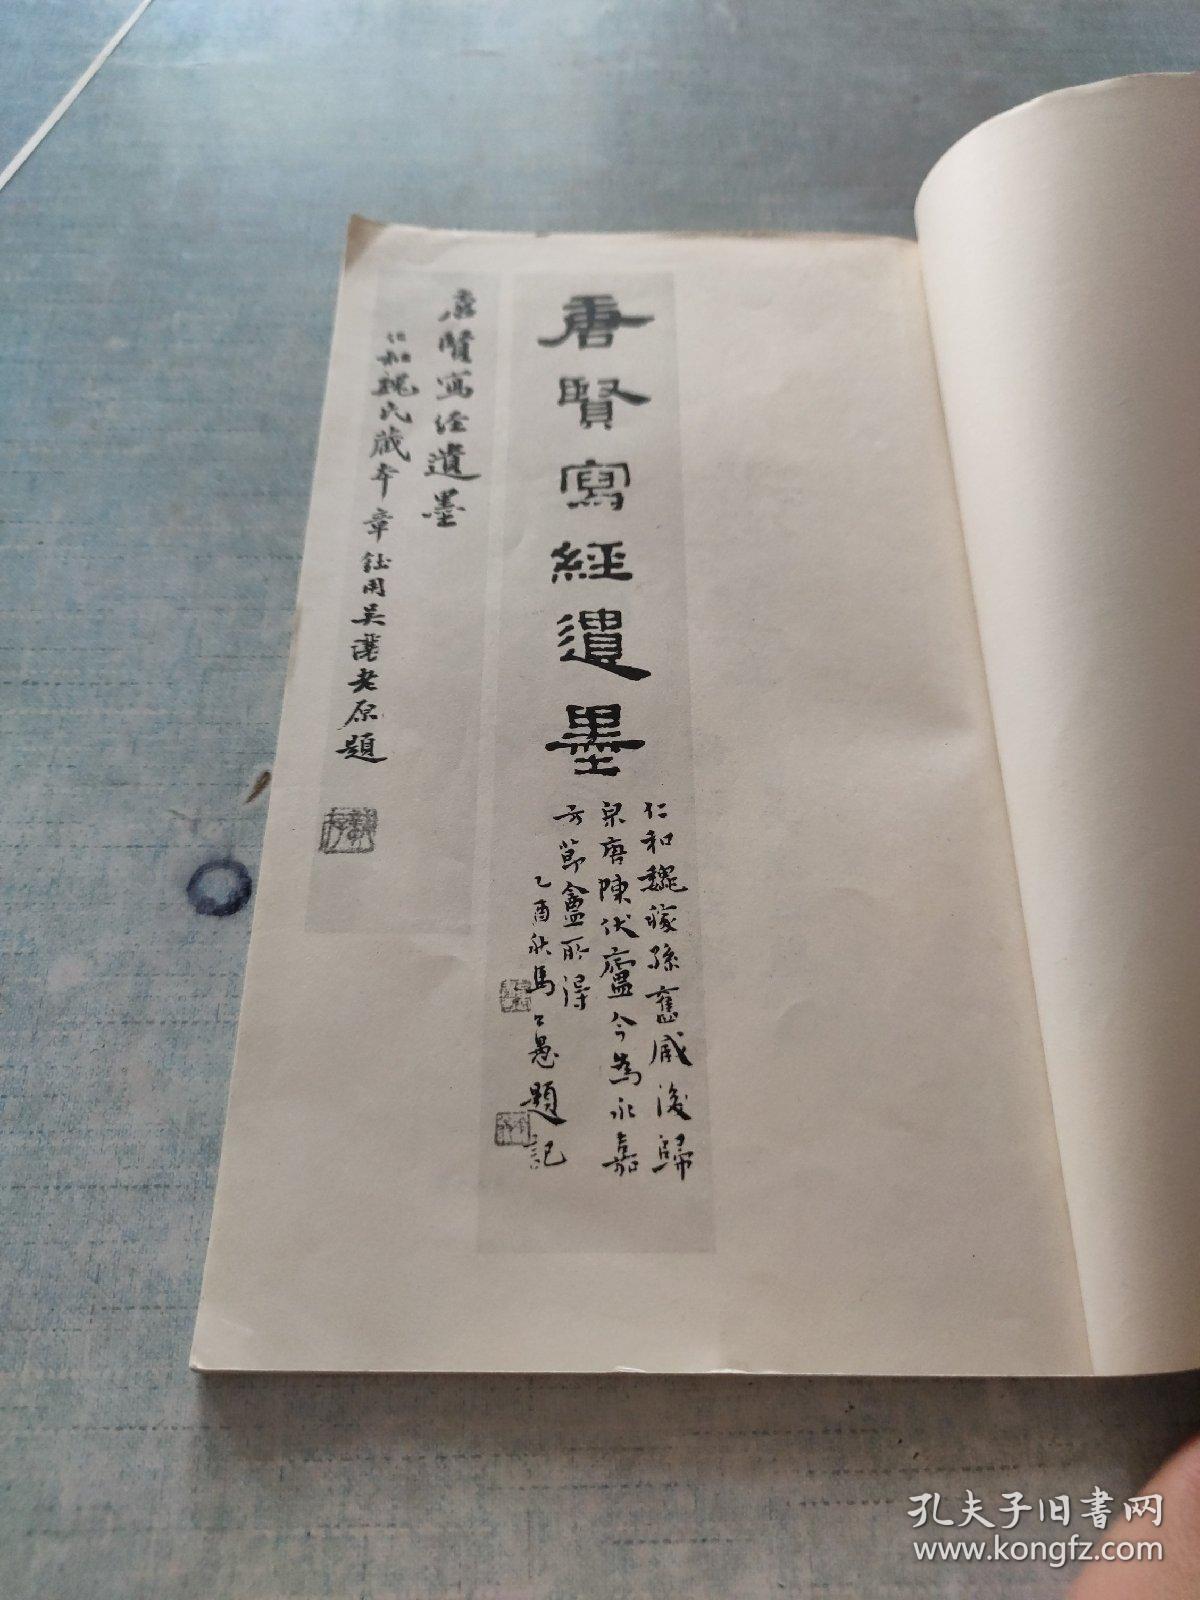 唐賢寫經遺墨
仁和魏稼孫舊臧後歸
泉唐陳伏廬今為永嘉
方節盦所得
乙酉秋馬公愚題記
唐賢寫经遺墨
仁和魏氏藏本章鈺用吴讓老原題
孔夫子旧书网
www.kongfz.com